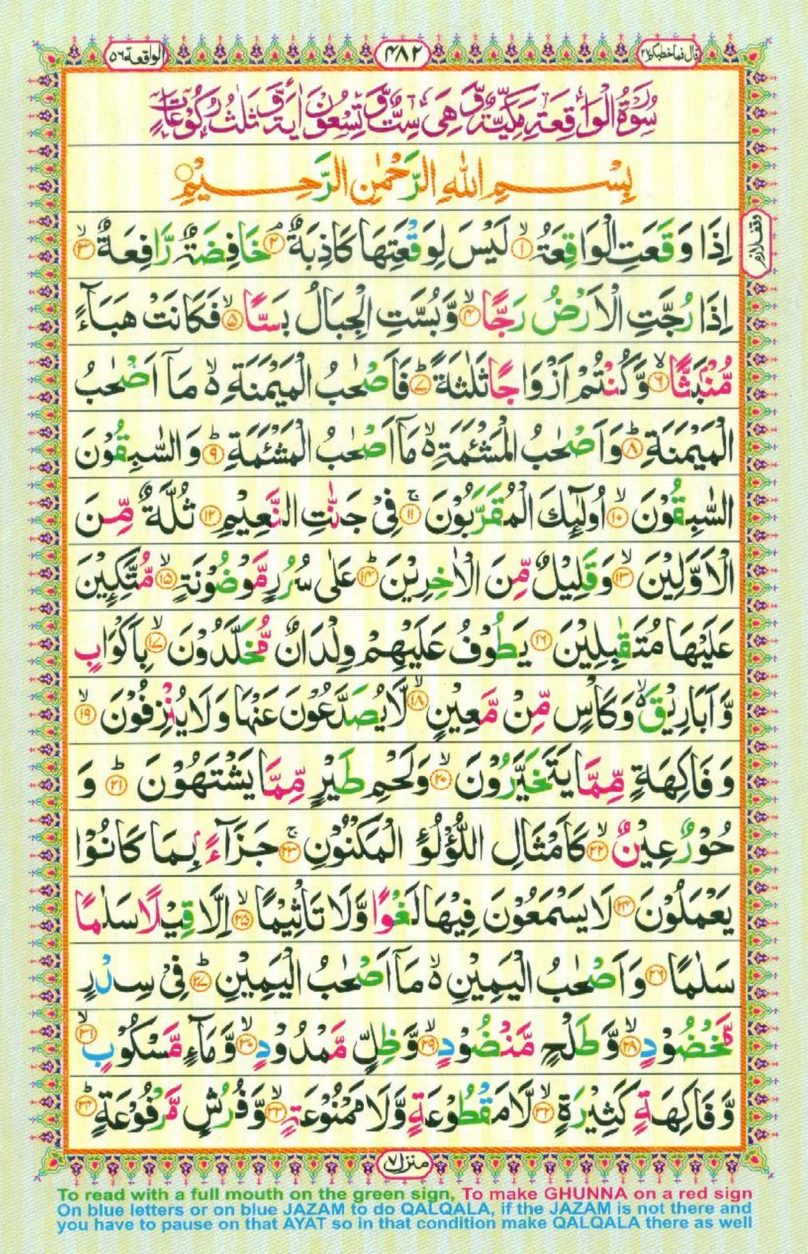 قال فما خطبكم ٢٧
٤٨٢
الواقعة ٥٦
سُوْرَةُ الْوَاقِعَةِ مَكِّيَّةٌ وَّهِيَ سِتٌّ وَّتِسْعُوْنَ اٰيَةً وَّثَلٰثُ رُكُوْعَاتٍ
بِسْمِ اللّٰهِ الرَّحْمٰنِ الرَّحِيْمِ
اِذَا وَقَعَتِ الْوَاقِعَةُ ۙ﴿۱﴾ لَيْسَ لِوَقْعَتِهَا كَاذِبَةٌ ۘ﴿۲﴾ خَافِضَةٌ رَّافِعَةٌ ۙ﴿۳﴾
وقف لازم
اِذَا رُجَّتِ الْاَرْضُ رَجًّا ۙ﴿۴﴾ وَّبُسَّتِ الْجِبَالُ بَسًّا ۙ﴿۵﴾ فَكَانَتْ هَبَآءً
مُّنْۢبَثًّا ۙ﴿۶﴾ وَّكُنْتُمْ اَزْوَاجًا ثَلٰثَةً ؕ﴿۷﴾ فَاَصْحٰبُ الْمَيْمَنَةِ ۙ۬ مَاۤ اَصْحٰبُ
الْمَيْمَنَةِ ؕ﴿۸﴾ وَاَصْحٰبُ الْمَشْئَمَةِ ۙ۬ مَاۤ اَصْحٰبُ الْمَشْئَمَةِ ؕ﴿۹﴾ وَالسّٰبِقُوْنَ
السّٰبِقُوْنَ ۙ﴿۱۰﴾ اُولٰٓئِكَ الْمُقَرَّبُوْنَ ۚ﴿۱۱﴾ فِيْ جَنّٰتِ النَّعِيْمِ ﴿۱۲﴾ ثُلَّةٌ مِّنَ
الْاَوَّلِيْنَ ۙ﴿۱۳﴾ وَقَلِيْلٌ مِّنَ الْاٰخِرِيْنَ ؕ﴿۱۴﴾ عَلٰى سُرُرٍ مَّوْضُوْنَةٍ ۙ﴿۱۵﴾ مُّتَّكِـِٕيْنَ
عَلَيْهَا مُتَقٰبِلِيْنَ ﴿۱۶﴾ يَطُوْفُ عَلَيْهِمْ وِلْدَانٌ مُّخَلَّدُوْنَ ۙ﴿۱۷﴾ بِاَكْوَابٍ
وَّاَبَارِيْقَ ۙ۬ وَكَاْسٍ مِّنْ مَّعِيْنٍ ۙ﴿۱۸﴾ لَّا يُصَدَّعُوْنَ عَنْهَا وَلَا يُنْزِفُوْنَ ۙ﴿۱۹﴾
وَفَاكِهَةٍ مِّمَّا يَتَخَيَّرُوْنَ ۙ﴿۲۰﴾ وَلَحْمِ طَيْرٍ مِّمَّا يَشْتَهُوْنَ ؕ﴿۲۱﴾ وَ
حُوْرٌ عِيْنٌ ۙ﴿۲۲﴾ كَاَمْثَالِ اللُّؤْلُؤِ الْمَكْنُوْنِ ۚ﴿۲۳﴾ جَزَآءًۢ بِمَا كَانُوْا
يَعْمَلُوْنَ ﴿۲۴﴾ لَا يَسْمَعُوْنَ فِيْهَا لَغْوًا وَّلَا تَاْثِيْمًا ۙ﴿۲۵﴾ اِلَّا قِيْلًا سَلٰمًا
سَلٰمًا ﴿۲۶﴾ وَاَصْحٰبُ الْيَمِيْنِ ۙ۬ مَاۤ اَصْحٰبُ الْيَمِيْنِ ؕ﴿۲۷﴾ فِيْ سِدْرٍ
مَّخْضُوْدٍ ۙ﴿۲۸﴾ وَّطَلْحٍ مَّنْضُوْدٍ ۙ﴿۲۹﴾ وَّظِلٍّ مَّمْدُوْدٍ ۙ﴿۳۰﴾ وَّمَآءٍ مَّسْكُوْبٍ ۙ﴿۳۱﴾
وَّفَاكِهَةٍ كَثِيْرَةٍ ۙ﴿۳۲﴾ لَّا مَقْطُوْعَةٍ وَّلَا مَمْنُوْعَةٍ ۙ﴿۳۳﴾ وَّفُرُشٍ مَّرْفُوْعَةٍ ؕ﴿۳۴﴾
منزل ٧
To read with a full mouth on the green sign, To make GHUNNA on a red sign
On blue letters or on blue JAZAM to do QALQALA, if the JAZAM is not there and
you have to pause on that AYAT so in that condition make QALQALA there as well